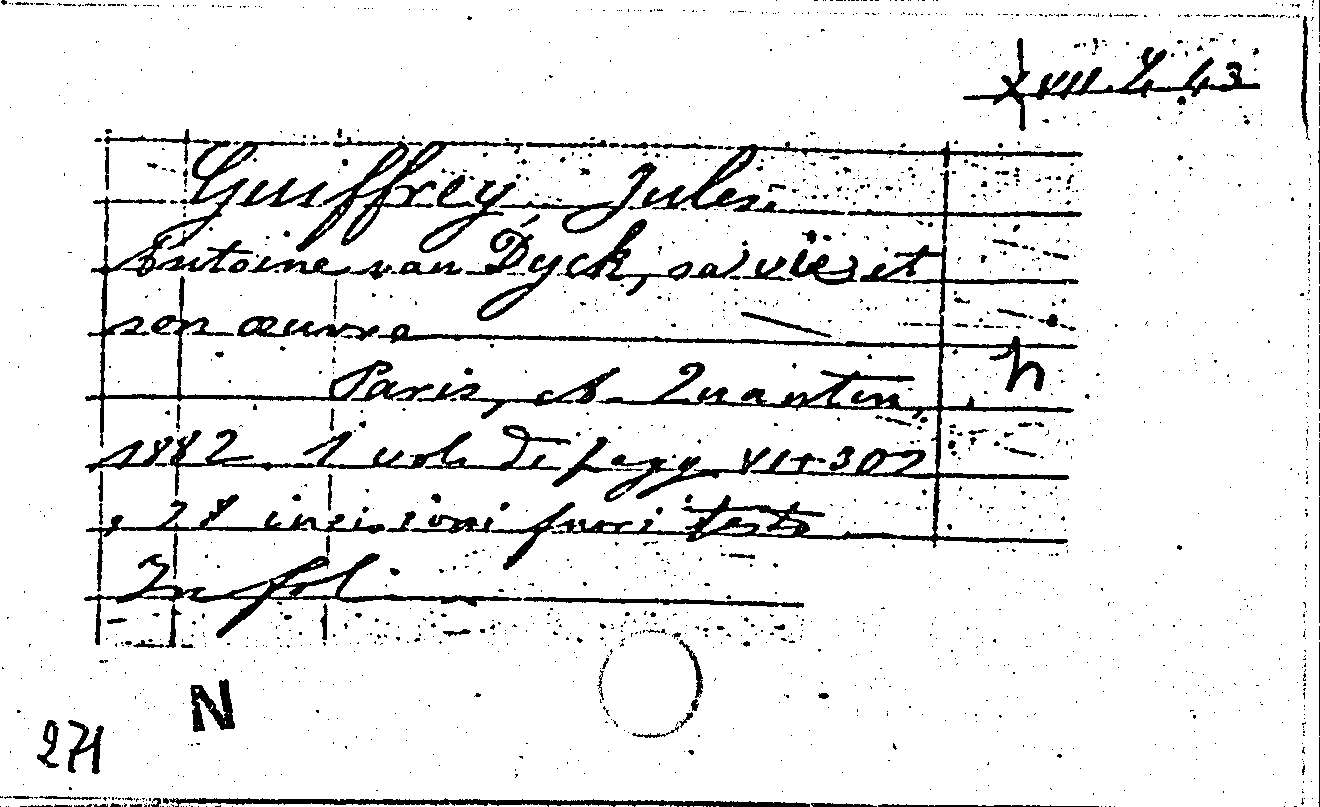 XVII.Z.43
Guiffrey, Jules.
Antoine van Dyck, sa vie et
son œuvre
Paris, A. Quantin,
h
1882. 1 vol. di pagg. VII+307
e 28 incisioni fuori testo
In fol.
N
271